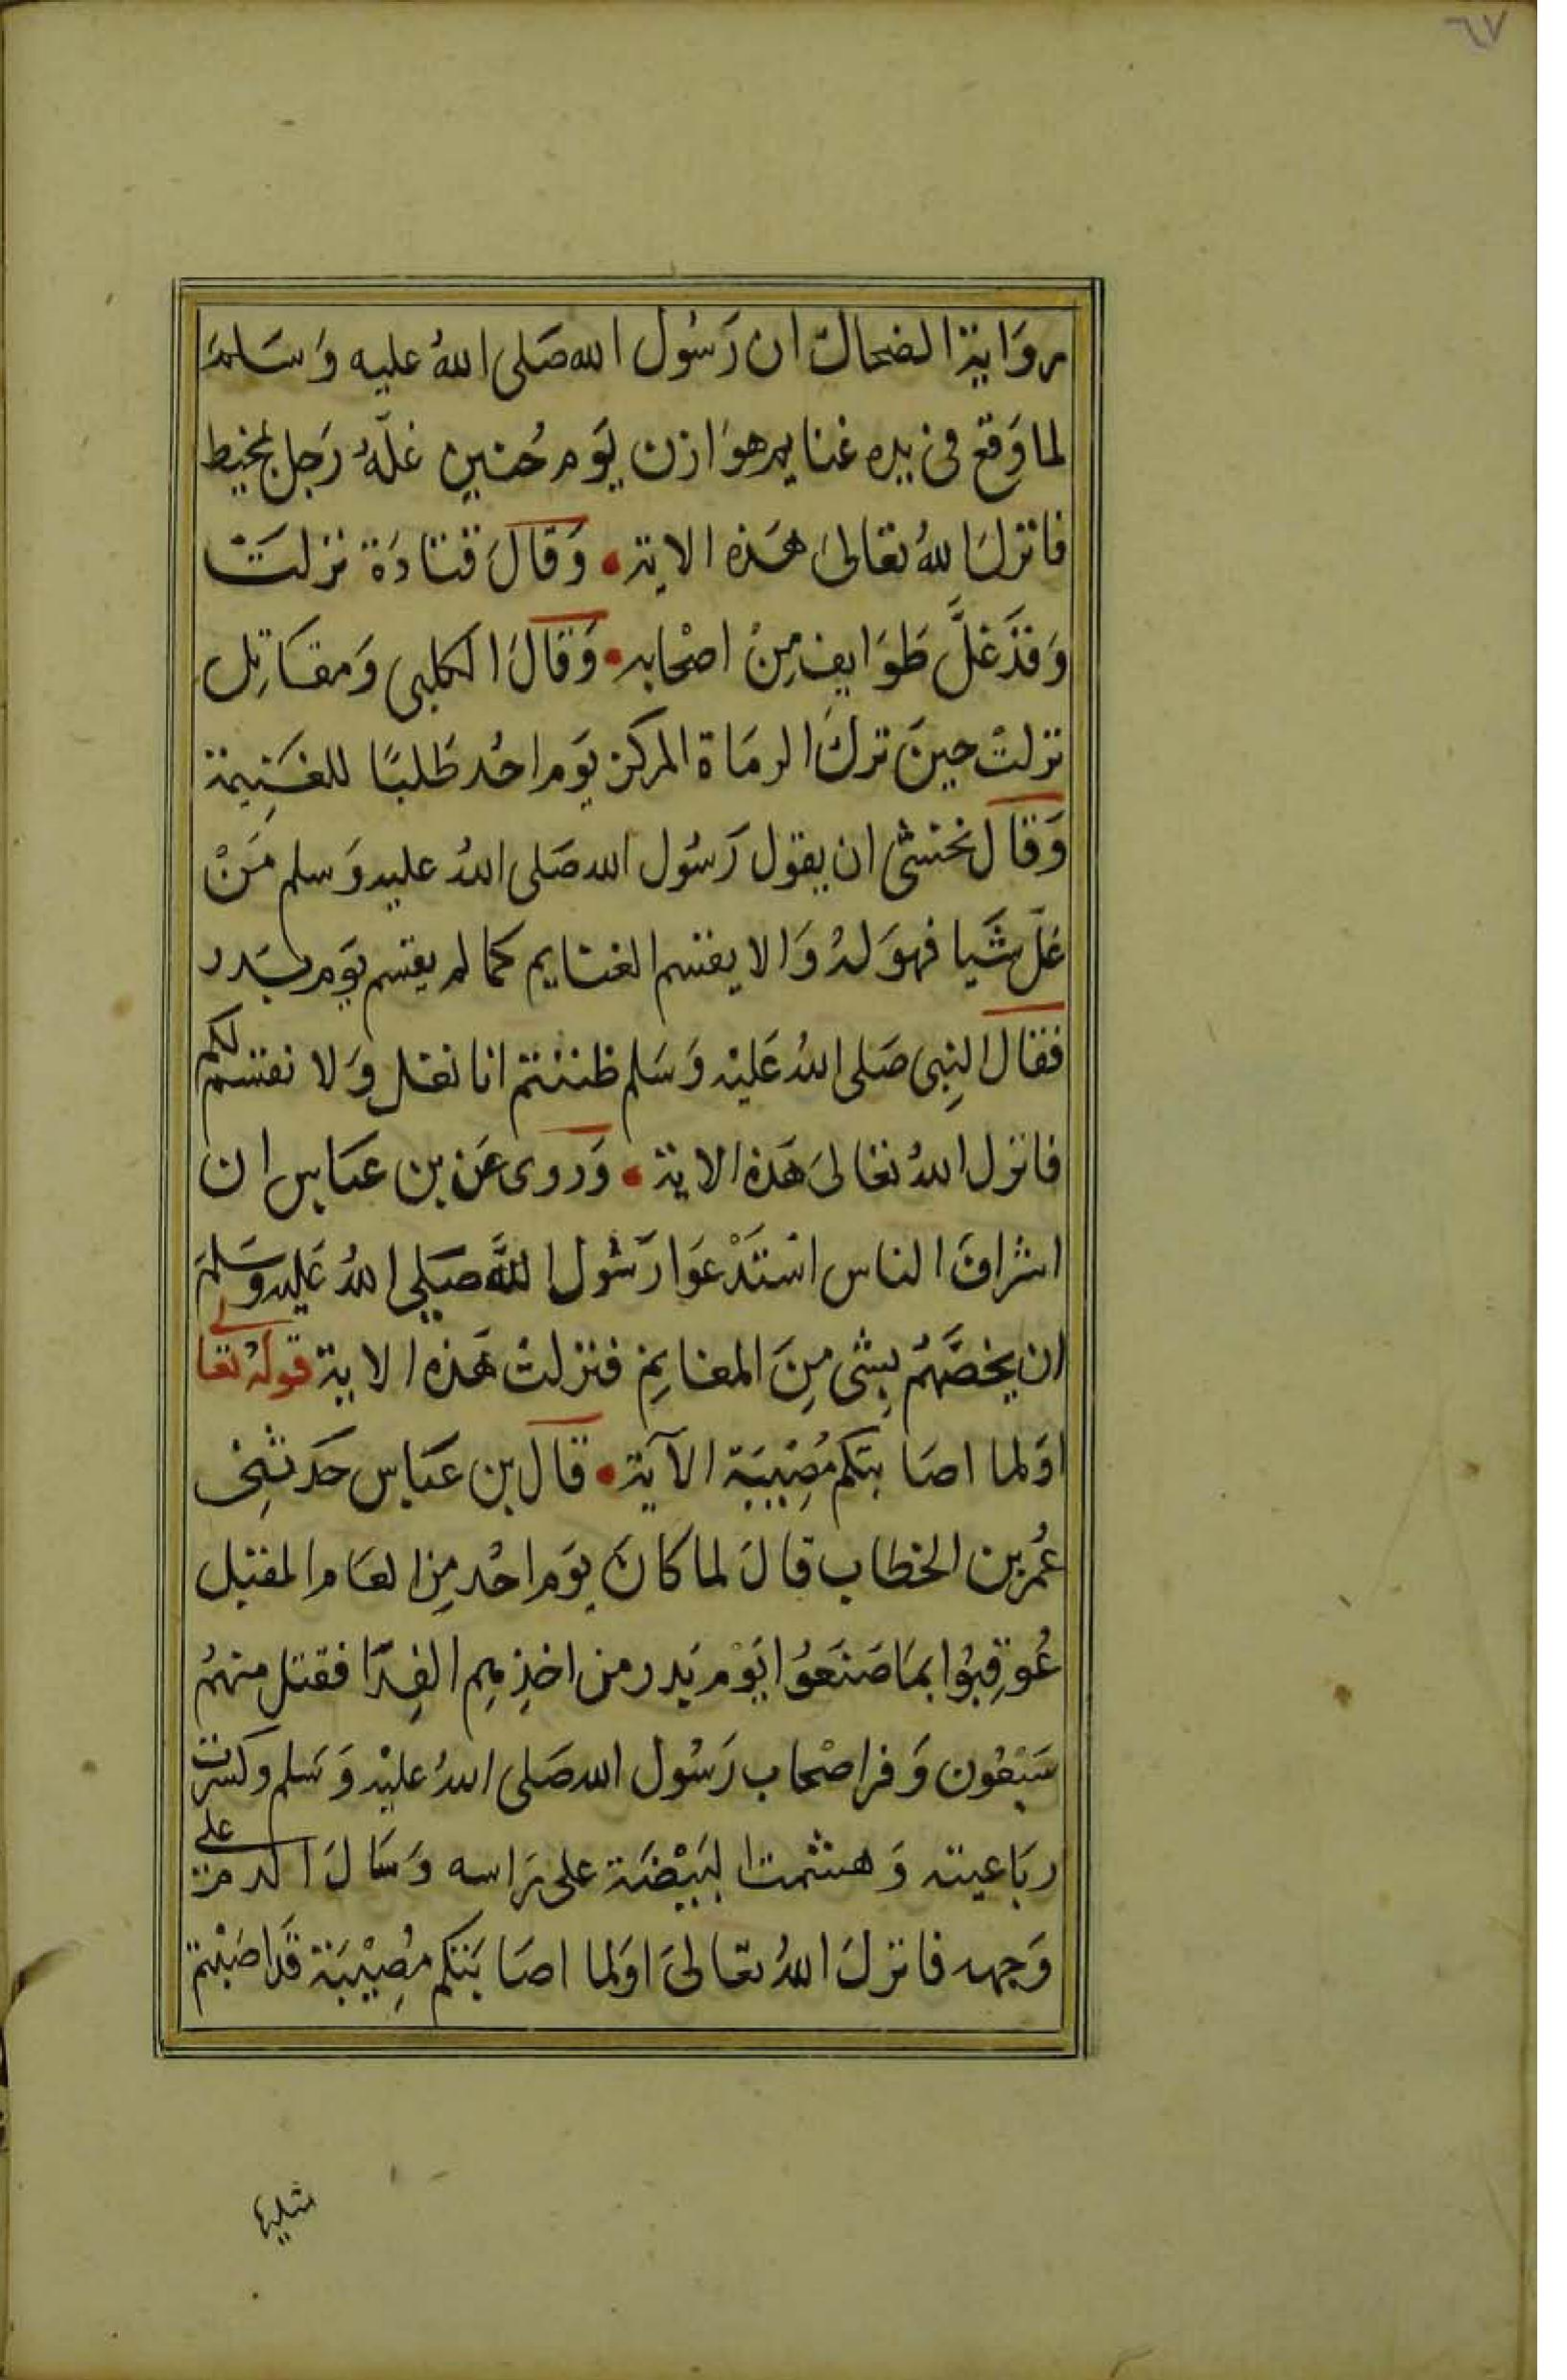 ٦٧
روَاية الضحاك ان رَسُول الله صَلى اللهُ عليه وَسَلمَ
لما وَقع فى يده غنايم هوَازن يَوم حُنين غلّهُ رَجل بمخيط
فانزلَ اللهُ تعالىَ هَذه الاية • وَقالَ قتادَة نزلتَ
وَقدَ غلَّ طَوَايف مِنْ اصْحابه • وَقالَ الكلبى وَمقاتِل
نزلتْ حينَ تركَ الرمَاة المركز يَوم احُد طَلبًا للغَنِيمة
وَقال نخشى ان يقول رَسُول الله صَلى اللهُ عليه وَسلم مَنْ
غلّ شَيا فهوَ لهُ وَالا يقسم الغنايم كما لم يقسم يَوم بَدر
فقال النِبى صَلى اللهُ عَليْه وَسَلم ظننتم انا نغل وَلا نقسم لكم
فانزل اللهُ تعَالىَ هَذه الاية • وَروى عَن بن عبَاس ان
اشرافَ الناس اسْتَدْعَوا رَسُول اللَّه صَلى اللهُ عَليه وسَلمَ
ان يخصَّهُم بشى مِنَ المغانِم فنزلتْ هَذه الاية قوله تعالى
اوَلما اصَابتكم مُصِيبَة الآية • قال بن عبَاس حَدثنِى
عُمر بن الخطاب قالَ لما كانَ يَوم احُد مِن العَام المقبل
عُوقِبُوا بمَا صَنَعُوا يَوْم بَدر من اخذِهِم الفِدَا فقتل منهُم
سَبْعُون وَفر اصْحاب رَسُول الله صَلى اللهُ عليْه وَسَلم وكسرت
ربَاعيته وَهشمت البَيْضَة على رَاسه وَسَالَ الدم على
وَجهه فانزلَ اللهُ تعَالىَ اوَلما اصَابَتكم مُصِيْبَة قَد اصَبْتم
مثليها